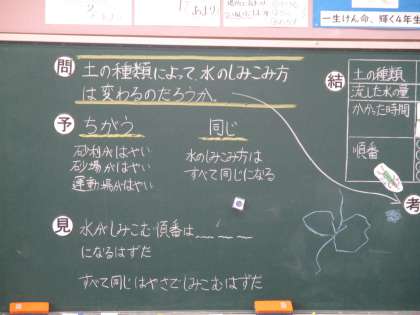 一生けん命、輝く4年生
問 土の種類によって、水のしみこみ方
は変わるのだろうか。
予 ちがう 同じ
砂利がはやい
砂場がはやい
運動場がはやい
水のしみこみ方は
すべて同じになる
見 水がしみこむ順番は＿＿＿
になるはずだ
すべて同じはやさでしみこむはずだ
結 土の種類
流した水の量
かかった時間
順番
考